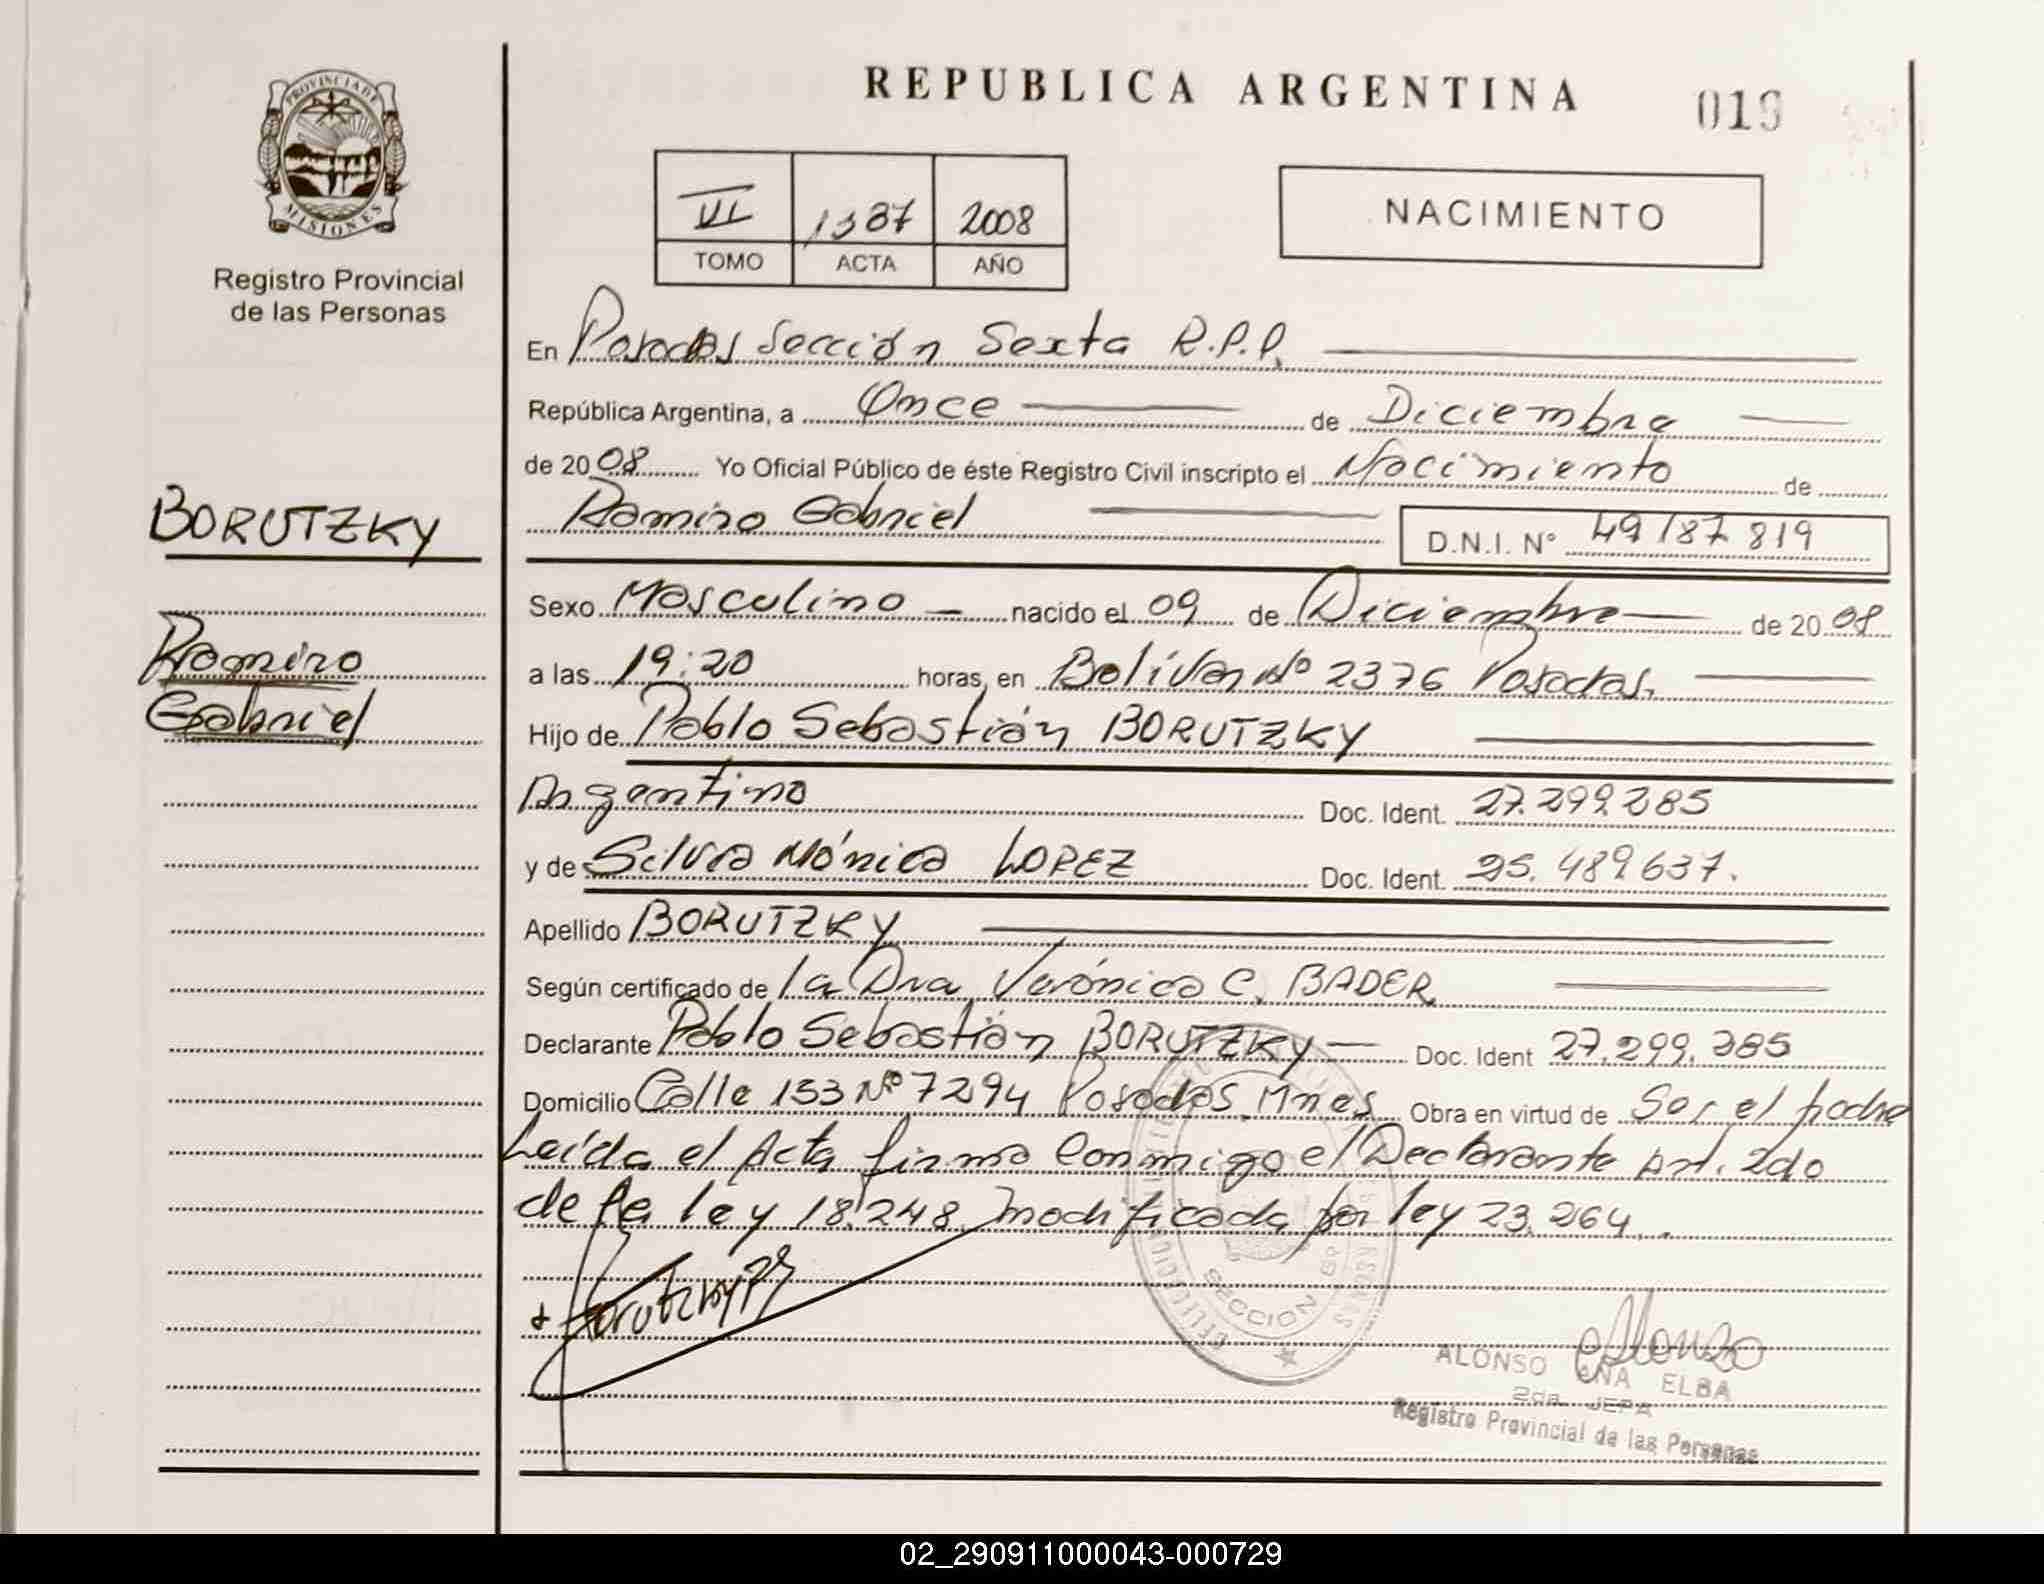 REPUBLICA ARGENTINA
019
PROVINCIA DE
MISIONES
Registro Provincial
de las Personas
VI 1387 2008
TOMO ACTA AÑO
NACIMIENTO
En Posadas Sección Sexta R.P.P.
República Argentina, a Once de Diciembre
de 2008 Yo Oficial Público de éste Registro Civil inscripto el Nacimiento de
Ramiro Gabriel D.N.I. N° 49 187 819
BORUTZKY
Ramiro
Gabriel
Sexo Masculino nacido el 09 de Diciembre de 2008
a las 19:20 horas, en Bolívar Nº 2376 Posadas.
Hijo de Pablo Sebastián BORUTZKY
Argentino Doc. Ident. 27.299.285
y de Silvia Mónica LOPEZ Doc. Ident. 25.489637.
Apellido BORUTZKY
Según certificado de la Dra Verónica C. BADER
Declarante Pablo Sebastián BORUTZKY Doc. Ident 27.299.385
Domicilio Calle 153 Nº 7294 Posadas Mnes Obra en virtud de Ser el padre
Leída el Acta firma Conmigo el Declarante Art. 2do
de la ley 18.248 modificada por ley 23.264.
Borutzky PS
SECCION
Alonso
ALONSO ANA ELBA
2da. JEFA
Registro Provincial de las Personas
02_290911000043-000729